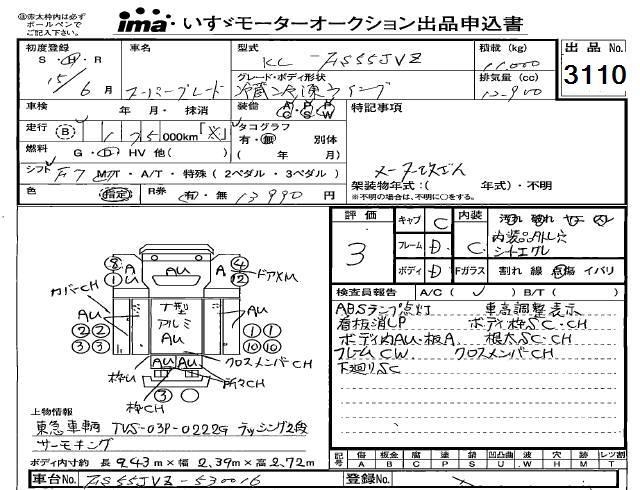 ㊟赤太枠内は必ず
ボールペンで
ご記入下さい。
ima いすゞモーターオークション出品申込書
初度登録
S・H・R
15年
6月
車名
スーパーグレート
型式
KL-FS55JVZ
積載 (kg)
11,000
出品 No.
3110
グレード・ボディ形状
冷蔵冷凍ウイング
排気量 (cc)
12,900
車検
年 月・ 抹消
装備 A/C P/S P/W
特記事項
メータ改ざん
走行
B
1 25 000km「メ」
タコグラフ
有・無 別体
( 年 月)
燃料 G・D・HV 他( )
シフト F7 M/T・A/T・特殆 (2ペダル・3ペダル)
架装物年式:( 年式)・不明
※不明の場合は、不明に○をする。
色 指定 R券 有・無 13990 円
評価
3
キャブ C
フレーム D
ボディ D
内装 C
汚れ 破れ ヤニ ヘレ
内装品外し穴
シートエグレ
Fガラス 割れ 線 点傷 イバリ
検査員報告 A/C( ✓ ) B/T( )
ABSランプ点灯 車高調整表示
看板消しP ボディ枠SC・CH
ボディ内AU・板A 根太SC・CH
フレームCW クロスメンバーCH
下廻りSC
8 A AU A 4
1 U 12 ドアXM
カバーCH
AU
T型
アルミ
AU
AU
2 2 1 1
3 3 10 10
クロスメンバーCH
枠U AU AU
所々CH
枠CH 3
上物情報
東急車輌 TVS-03P-0222G ラッシング2段
サーモキング
ボディ内寸約 長 9.43m×幅 2.39m×高 2.72m
記号 傷 A 板金 B 腐 C 塗 P 錆 S 凹凸曲 U 波 W 穴 H 跡 M レツ割 T
車台No. FS55JVZ-530016
登録No.